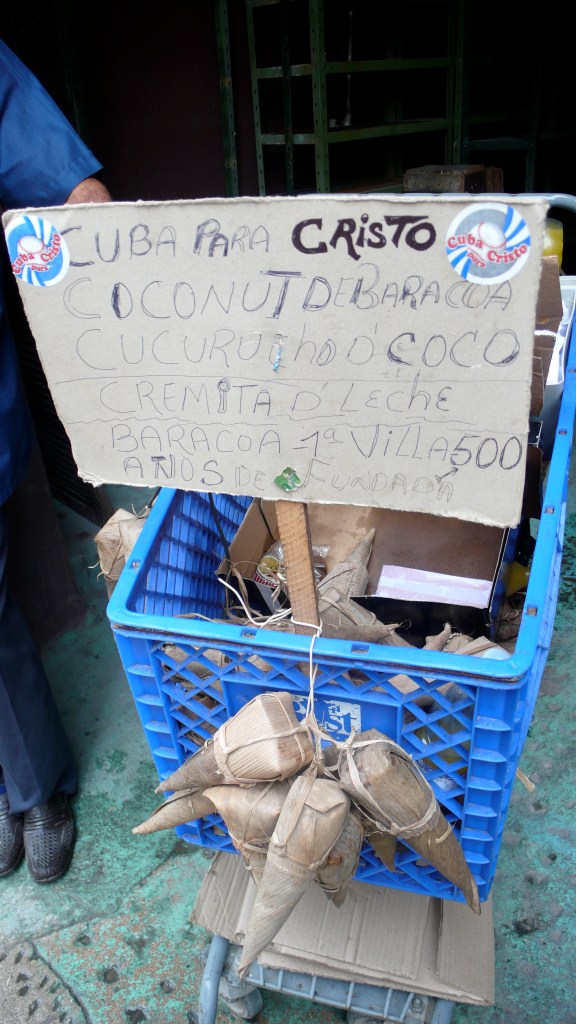 CUBA PARA CRISTO
COCONUT DE BARACOA
CUCURUCHO D' COCO
CREMITA D' LeChe
BARACOA 1ª VILLA 500
AÑOS DE FUNDADA
Cuba para Cristo
Cuba para Cristo